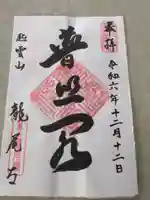 奉拝
令和六年十二月十二日
普照閣
龍尾寺